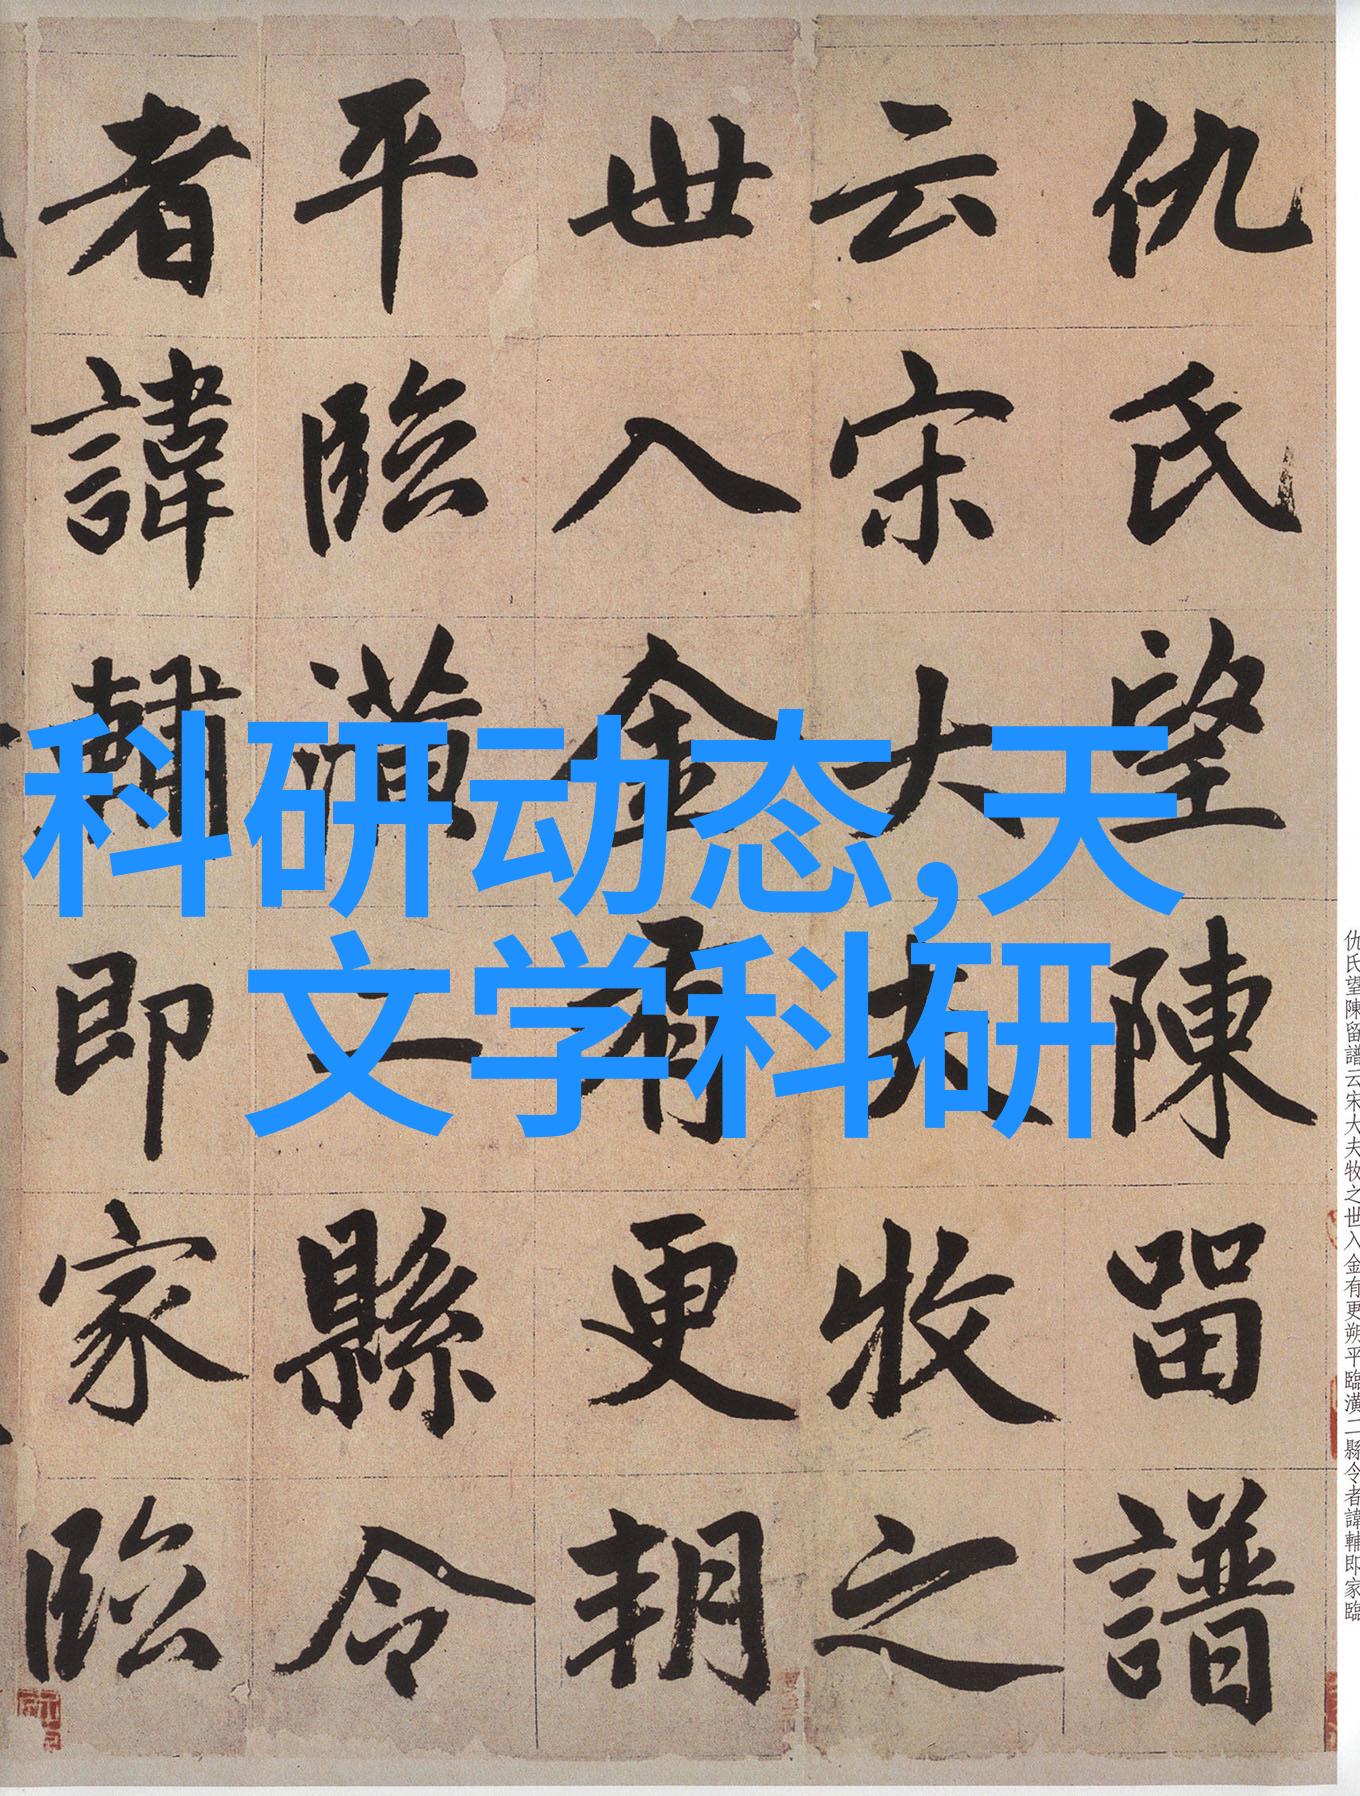 科研动态,天
文学科研
仇氏望陳留譜
云宋大夫牧之
世入金有更朔
平臨潢二縣令
者諱輔即家臨
仇氏望陳留譜云宋大夫牧之世入金有更朔平臨潢二縣令者諱輔即家臨